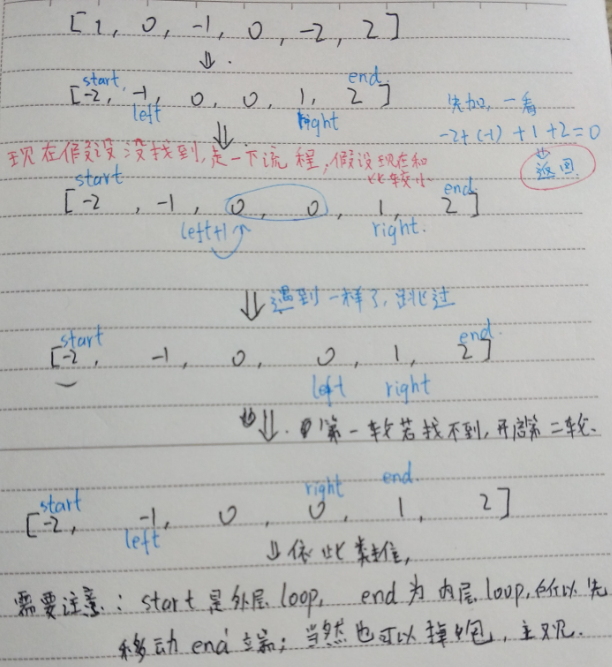 [1, 0, -1, 0, -2, 2]
⇓.
start end
[-2, -1, 0, 0, 1, 2]
left right
先加，一看
-2+(-1)+1+2=0
⇓
返回
现在假设没找到，走一下流程，假设现在和
比较小
start end
[-2, -1, 0, 0, 1, 2]
left+1 right.
⇓遇到一样了，跳过
start end.
[-2, -1, 0, 0, 1, 2]
left right
⇓. 第一轮若找不到，开启第二轮.
start right end.
[-2, -1, 0, 0, 1, 2]
left
↓依此类推，
需要注意：start是外层loop, end为内层loop，所以先
移动end 端；当然也可以掉包，主观.